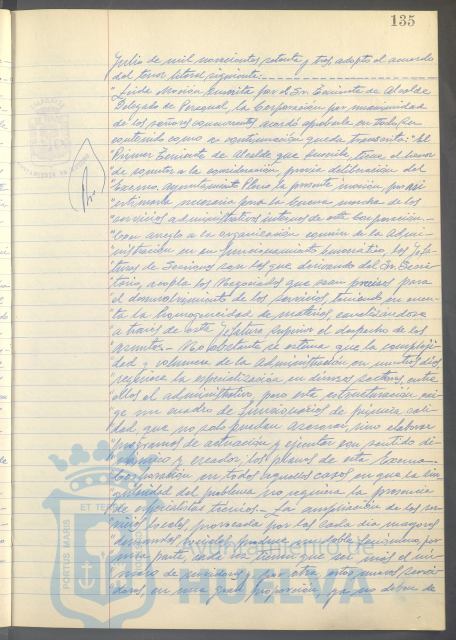 135
Julio de mil novecientos setenta y tres, adopto el acuerdo
del tenor literal siguiente:
"Leída Moción suscrita por el Sr. Teniente de Alcalde
Delegado de Personal, la Corporación por unanimidad
de los señores concurrentes acordó aprobarla en todo su
contenido como a continuación queda transcrita: "El
"Primer Teniente de Alcalde que suscribe tiene el honor
"de someter a la consideración, previa deliberación del
"Excmo. Ayuntamiento Pleno la presente moción por así
"estimarlo necesario para la buena marcha de los
"servicios administrativos internos de esta Corporación.-
"Con arreglo a la organización común de la Admi-
"nistración en su funcionamiento burocrático, las Jefa-
"turas de Secciones son las que derivando del Sr. Secre
"tario, acopla los Negociados que sean precisos para
"el desenvolvimiento de los servicios, teniendo en cuen-
"ta la homogeneidad de materias, canalizándose
"a través de esta Jefatura superior el despacho de los
"asuntos.- No obstante se estima que la compleji-
"dad y volumen de la Administración en nuestros días,
"requiere la especialización en diversos sectores, entre
"ellos el administrativo, pero esta estructuración exi-
"ge un cuadro de funcionarios de superior cali-
"dad, que no solo puedan asesorar, sino elaborar
"programas de actuación y ejecutar con sentido di-
"námico y creador los planes de esta Excma.
"Corporación en todos aquellos casos en que la sin-
"gularidad del problema no requiera la presencia
"de especialistas técnicos.- La ampliación de los ser-
"vicios locales, provocada por las cada día mayores
"demandas sociales, produce un doble fenómeno, por
"una parte, cada vez tiene que ser más el nú-
"mero de servidores y por otra estos nuevos servi-
"dores, en una gran proporción, ya no deben de
PORTUS MARIS
ET TER
Ayuntamiento de
HUELVA